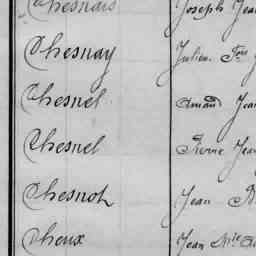 Chesnais Joseph Jean
Chesnay Julien Fois
Chesnel Amand Jean
Chesnel Pierre Jean
Chesnot Jean B
Cheux Jean Mie